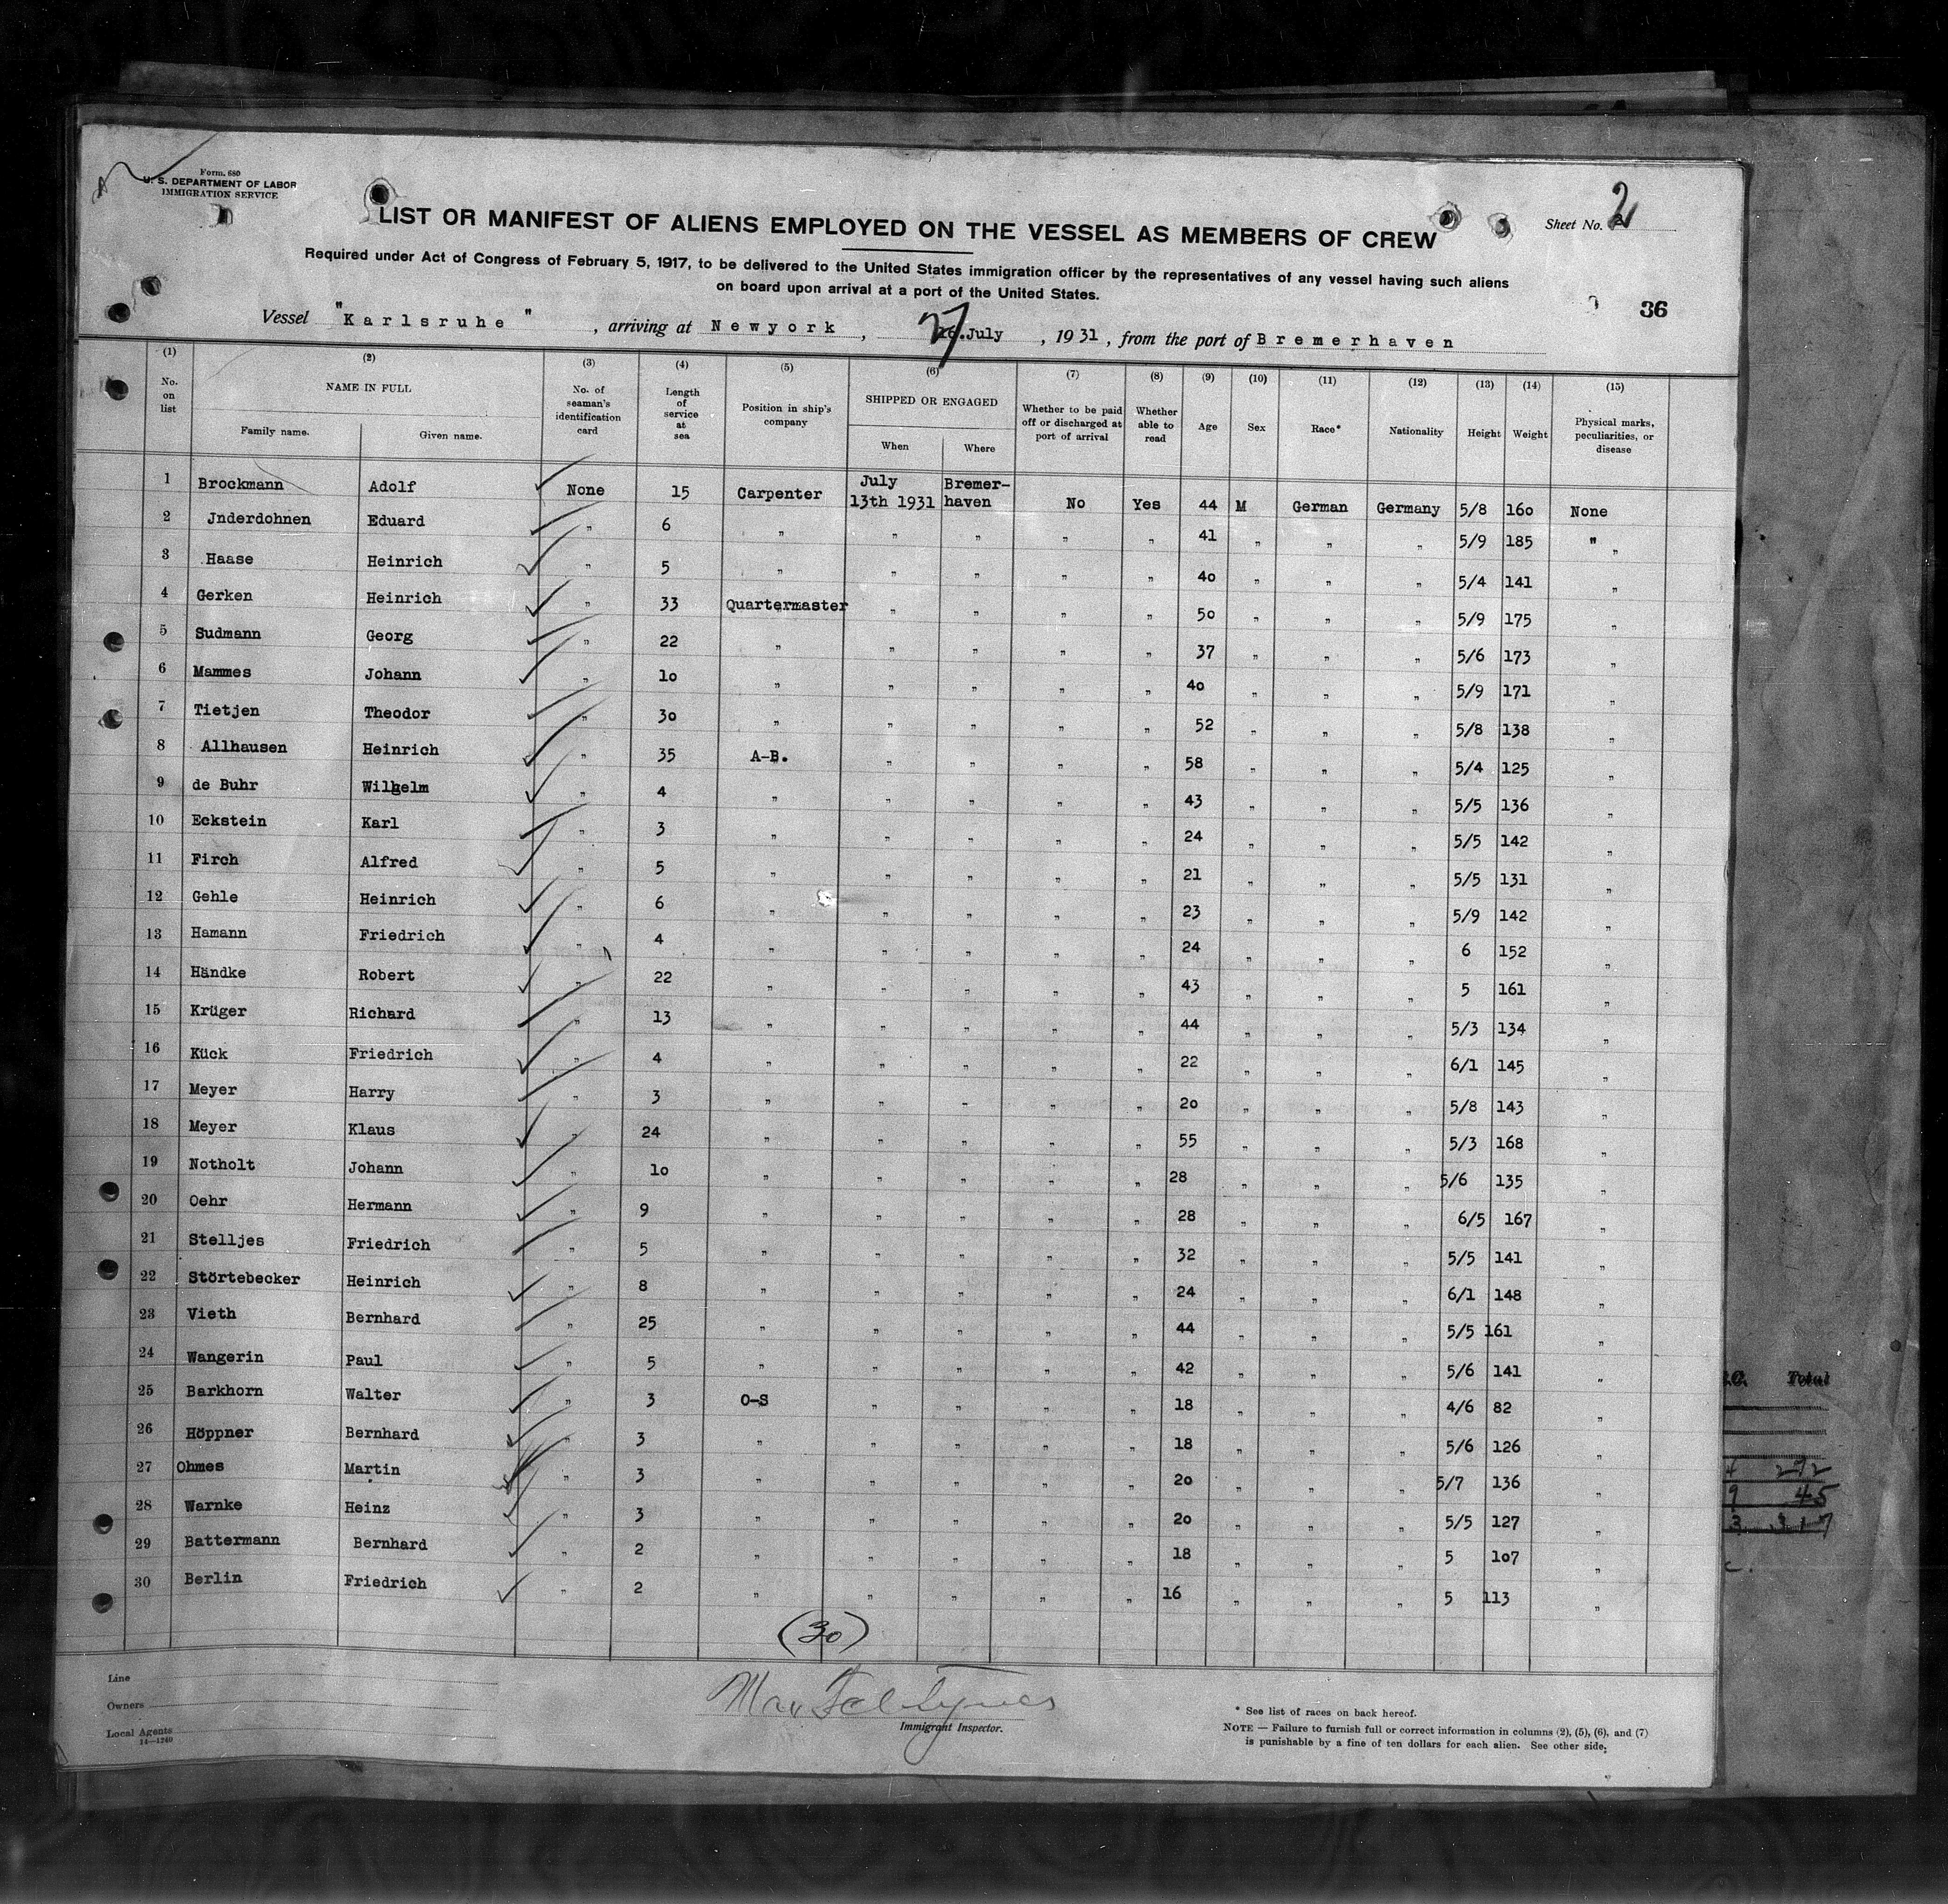 Form. 680
U. S. DEPARTMENT OF LABOR
IMMIGRATION SERVICE
LIST OR MANIFEST OF ALIENS EMPLOYED ON THE VESSEL AS MEMBERS OF CREW
Sheet No. 2
Required under Act of Congress of February 5, 1917, to be delivered to the United States immigration officer by the representatives of any vessel having such aliens
on board upon arrival at a port of the United States.
36
Vessel "Karlsruhe", arriving at Newyork, 27 July, 1931, from the port of Bremerhaven
(1) (2) (3) (4) (5) (6) (7) (8) (9) (10) (11) (12) (13) (14) (15)
No. on list NAME IN FULL Family name. Given name. No. of seaman's identification card Length of service at sea Position in ship's company SHIPPED OR ENGAGED When Where Whether to be paid off or discharged at port of arrival Whether able to read Age Sex Race* Nationality Height Weight Physical marks, peculiarities, or disease
1 Brockmann Adolf None 15 Carpenter July 13th 1931 Bremer-haven No Yes 44 M German Germany 5/8 160 None
2 Jnderdohnen Eduard " 6 " " " " " 41 " " " 5/9 185 " "
3 Haase Heinrich " 5 " " " " " 40 " " " 5/4 141 "
4 Gerken Heinrich " 33 Quartermaster " " " " 50 " " " 5/9 175 "
5 Sudmann Georg " 22 " " " " " 37 " " " 5/6 173 "
6 Mammes Johann " 10 " " " " " 40 " " " 5/9 171 "
7 Tietjen Theodor " 30 " " " " " 52 " " " 5/8 138 "
8 Allhausen Heinrich " 35 A-B. " " " " 58 " " " 5/4 125 "
9 de Buhr Wilhelm " 4 " " " " " 43 " " " 5/5 136 "
10 Eckstein Karl " 3 " " " " " 24 " " " 5/5 142 "
11 Firch Alfred " 5 " " " " " 21 " " " 5/5 131 "
12 Gehle Heinrich " 6 " " " " " 23 " " " 5/9 142 "
13 Hamann Friedrich " 4 " " " " " 24 " " " 6 152 "
14 Händke Robert " 22 " " " " " 43 " " " 5 161 "
15 Krüger Richard " 13 " " " " " 44 " " " 5/3 134 "
16 Kück Friedrich " 4 " " " " " 22 " " " 6/1 145 "
17 Meyer Harry " 3 " " " " " 20 " " " 5/8 143 "
18 Meyer Klaus " 24 " " " " " 55 " " " 5/3 168 "
19 Notholt Johann " 10 " " " " " 28 " " " 5/6 135 "
20 Oehr Hermann " 9 " " " " " 28 " " " 6/5 167 "
21 Stelljes Friedrich " 5 " " " " " 32 " " " 5/5 141 "
22 Störtebecker Heinrich " 8 " " " " " 24 " " " 6/1 148 "
23 Vieth Bernhard " 25 " " " " " 44 " " " 5/5 161 "
24 Wangerin Paul " 5 " " " " " 42 " " " 5/6 141 "
25 Barkhorn Walter " 3 O-S " " " " 18 " " " 4/6 82 "
26 Höppner Bernhard " 3 " " " " " 18 " " " 5/6 126 "
27 Ohmes Martin " 3 " " " " " 20 " " " 5/7 136 "
28 Warnke Heinz " 3 " " " " " 20 " " " 5/5 127 "
29 Battermann Bernhard " 2 " " " " " 18 " " " 5 107 "
30 Berlin Friedrich " 2 " " " " " 16 " " " 5 113 "
(30)
Line
Owners
Local Agents
14—1240
Immigrant Inspector.
* See list of races on back hereof.
NOTE — Failure to furnish full or correct information in columns (2), (5), (6), and (7)
is punishable by a fine of ten dollars for each alien. See other side.
Total
272
45
317